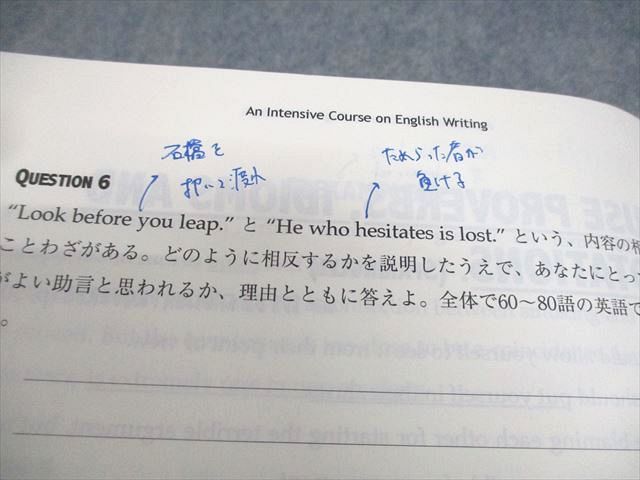 An Intensive Course on English Writing
石橋を
叩いて渡れ
ためらった者が
負ける
QUESTION 6
“Look before you leap.” と “He who hesitates is lost.” という、内容の相
ことわざがある。どのように相反するかを説明したうえで、あなたにとっ
がよい助言と思われるか、理由とともに答えよ。全体で60～80語の英語で
。